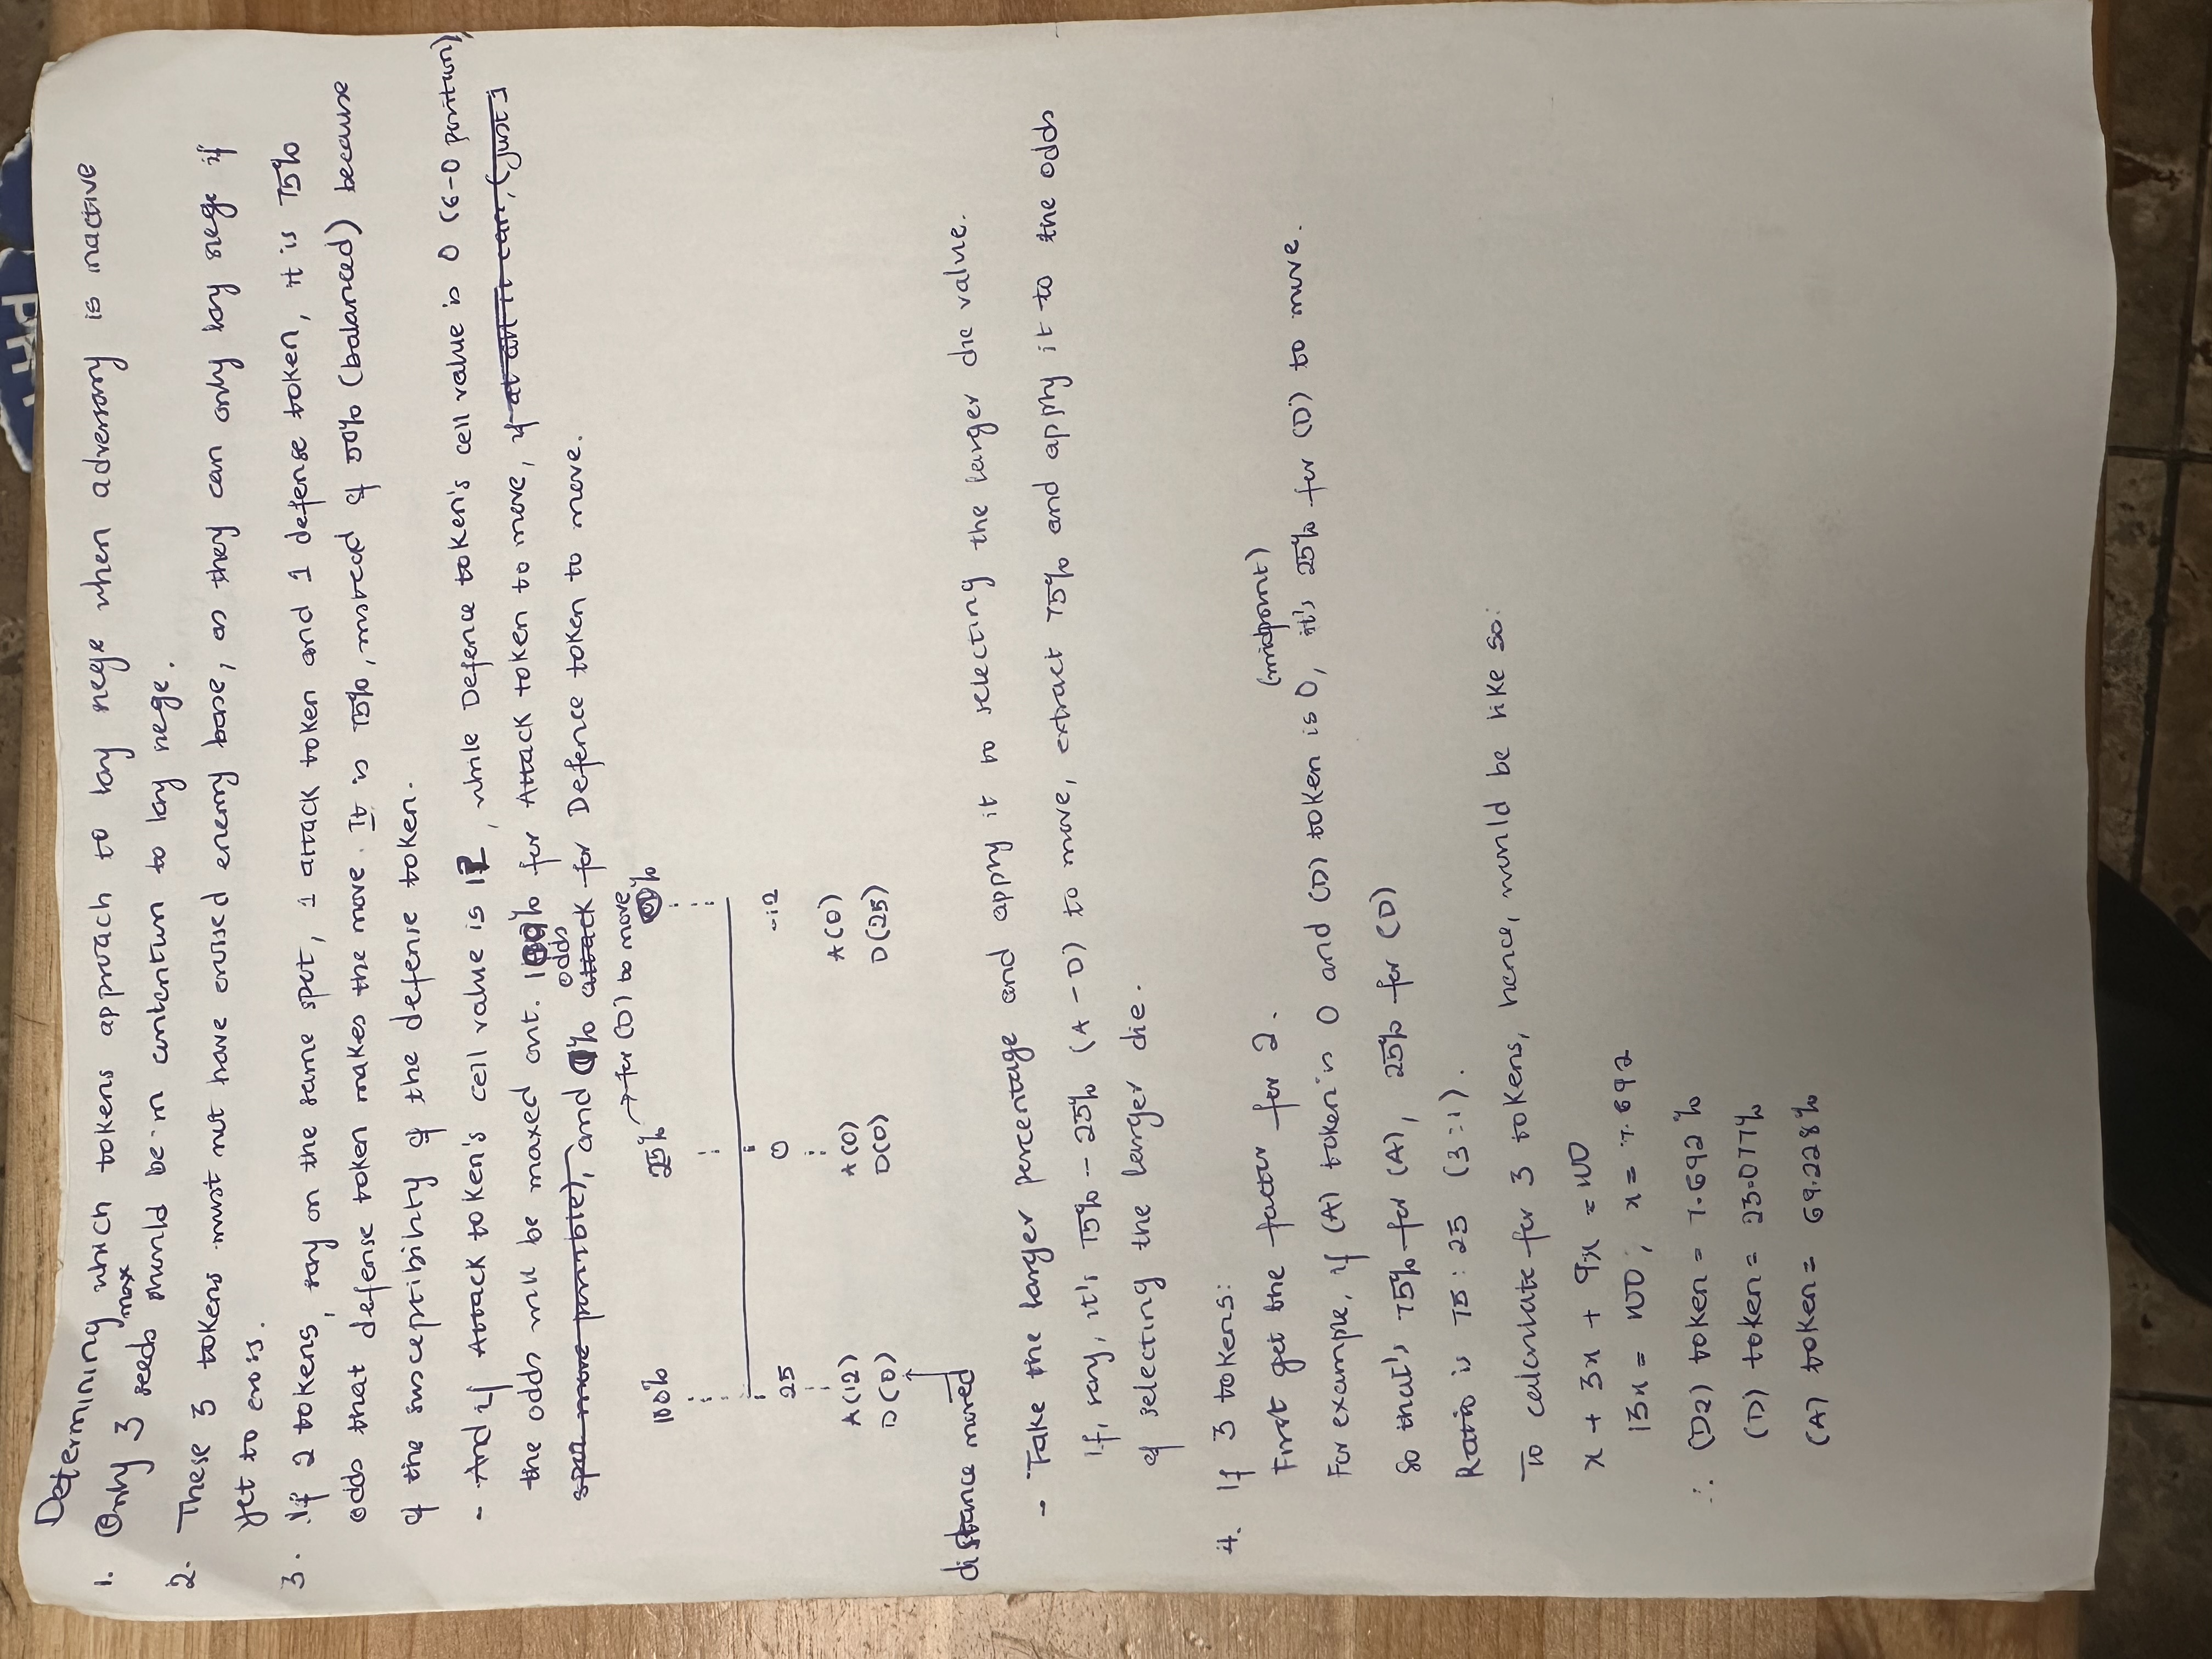 Determining which tokens approach to lay siege when adversary is inactive
1. Only 3 seeds max should be in contention to lay siege.
2. These 3 tokens must not have crossed enemy base, as they can only lay siege if
yet to cross.
3. If 2 tokens, say on the same spot, 1 attack token and 1 defense token, it is 75%
odds that defense token makes the move. It is 75%, instead of 50% (balanced) because
of the susceptibility of the defense token.
- And if Attack token's cell value is 12, while Defence token's cell value is 0 (6-0 position),
the odds will be maxed out. 100% for Attack token to move, if at all it can, (just 1
spot move possible), and 0% odds attack for Defence token to move.
→ for (D) to move
100% 25% 0%
25 0 -12
A(12) A(0) A(0)
D(0) D(0) D(25)
distance moved
- Take the larger percentage and apply it to selecting the larger die value.
If, say, it's 75% - 25% (A - D) to move, extract 75% and apply it to the odds
of selecting the larger die.
4. If 3 tokens:
First get the factor for 2.
(midpoint)
For example, if (A) token is 0 and (D) token is 0, it's 25% for (D) to move.
So that's 75% for (A), 25% for (D)
Ratio is 75 : 25 (3:1).
To calculate for 3 tokens, hence, would be like so:
x + 3x + 9x = 100
13x = 100; x = 7.692
∴ (D2) token = 7.692%
(D) token = 23.077%
(A) token = 69.228%